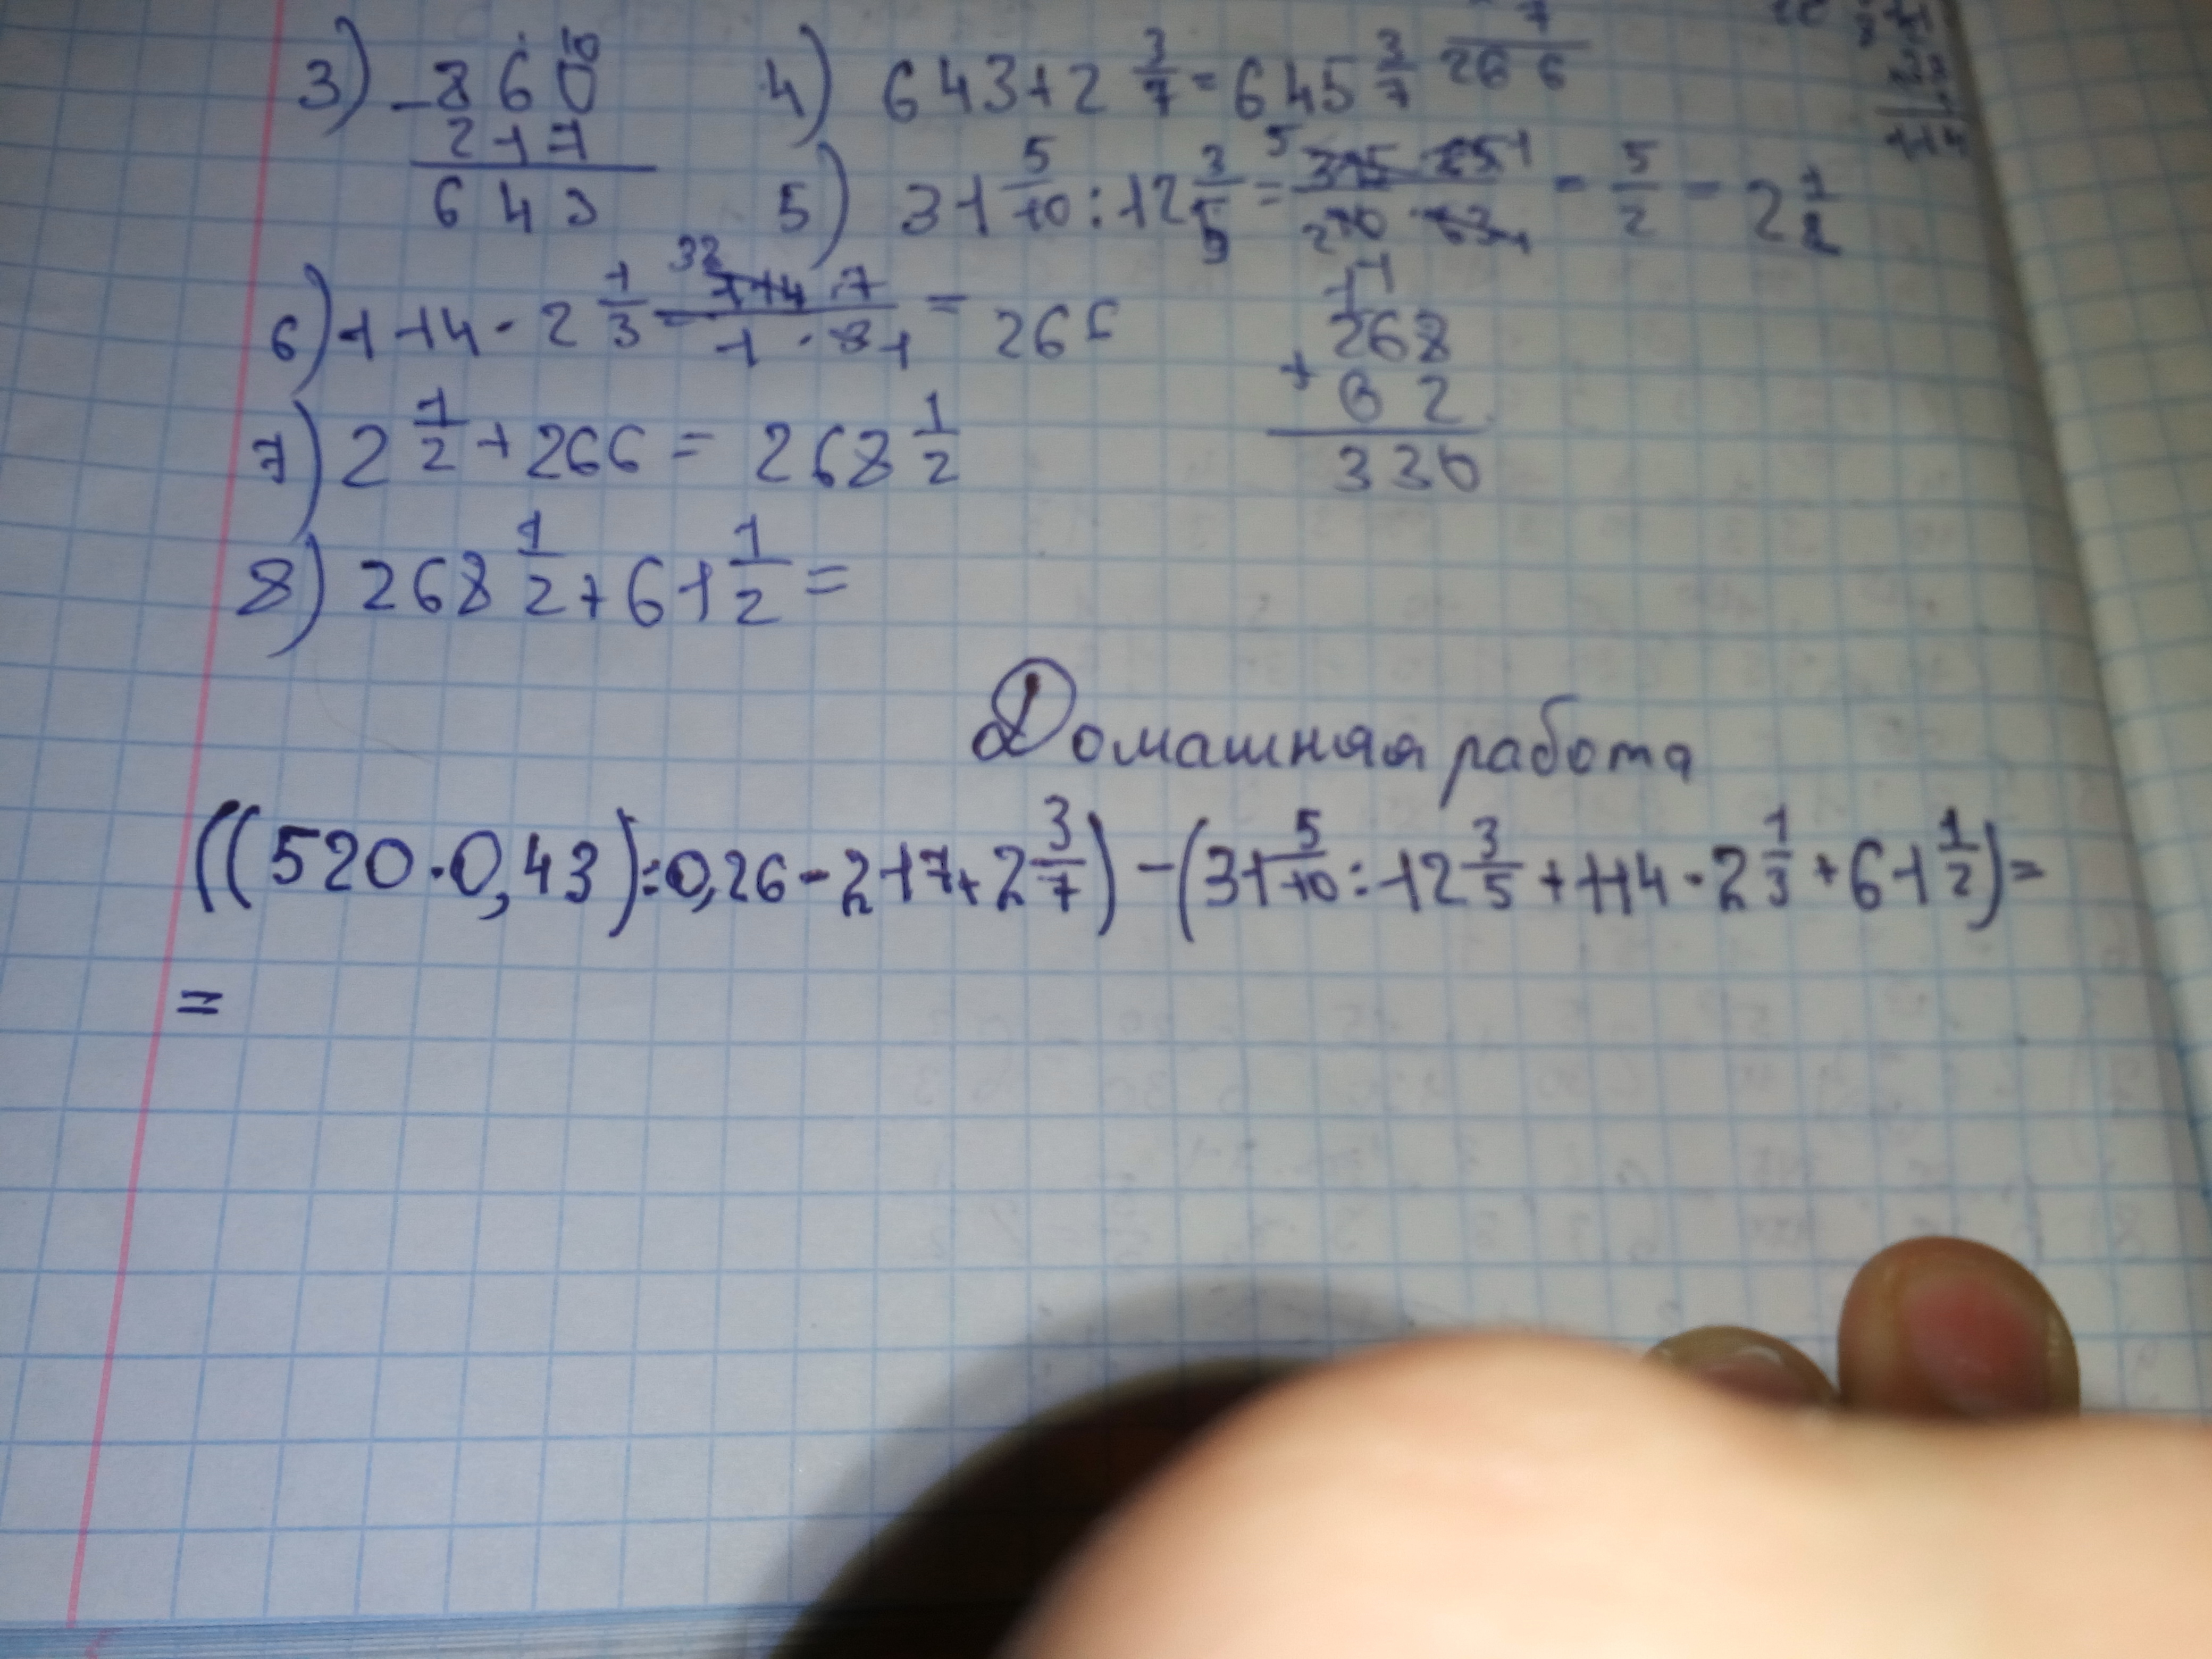 3) - 860
217
643
4) 643+2 3/7=645 3/7
7
266
5) 31 5/10:12 3/5= = 5/2 = 2 1/2
6) 114·2 1/3= 114·7/1·3 = 266
268
+ 62
330
7) 2 1/2+266=268 1/2
8) 268 1/2+61 1/2=
Домашняя работа
((520·0,43):0,26-217+2 3/7)-(31 5/10:12 3/5+114·2 1/3+61 1/2)=
=